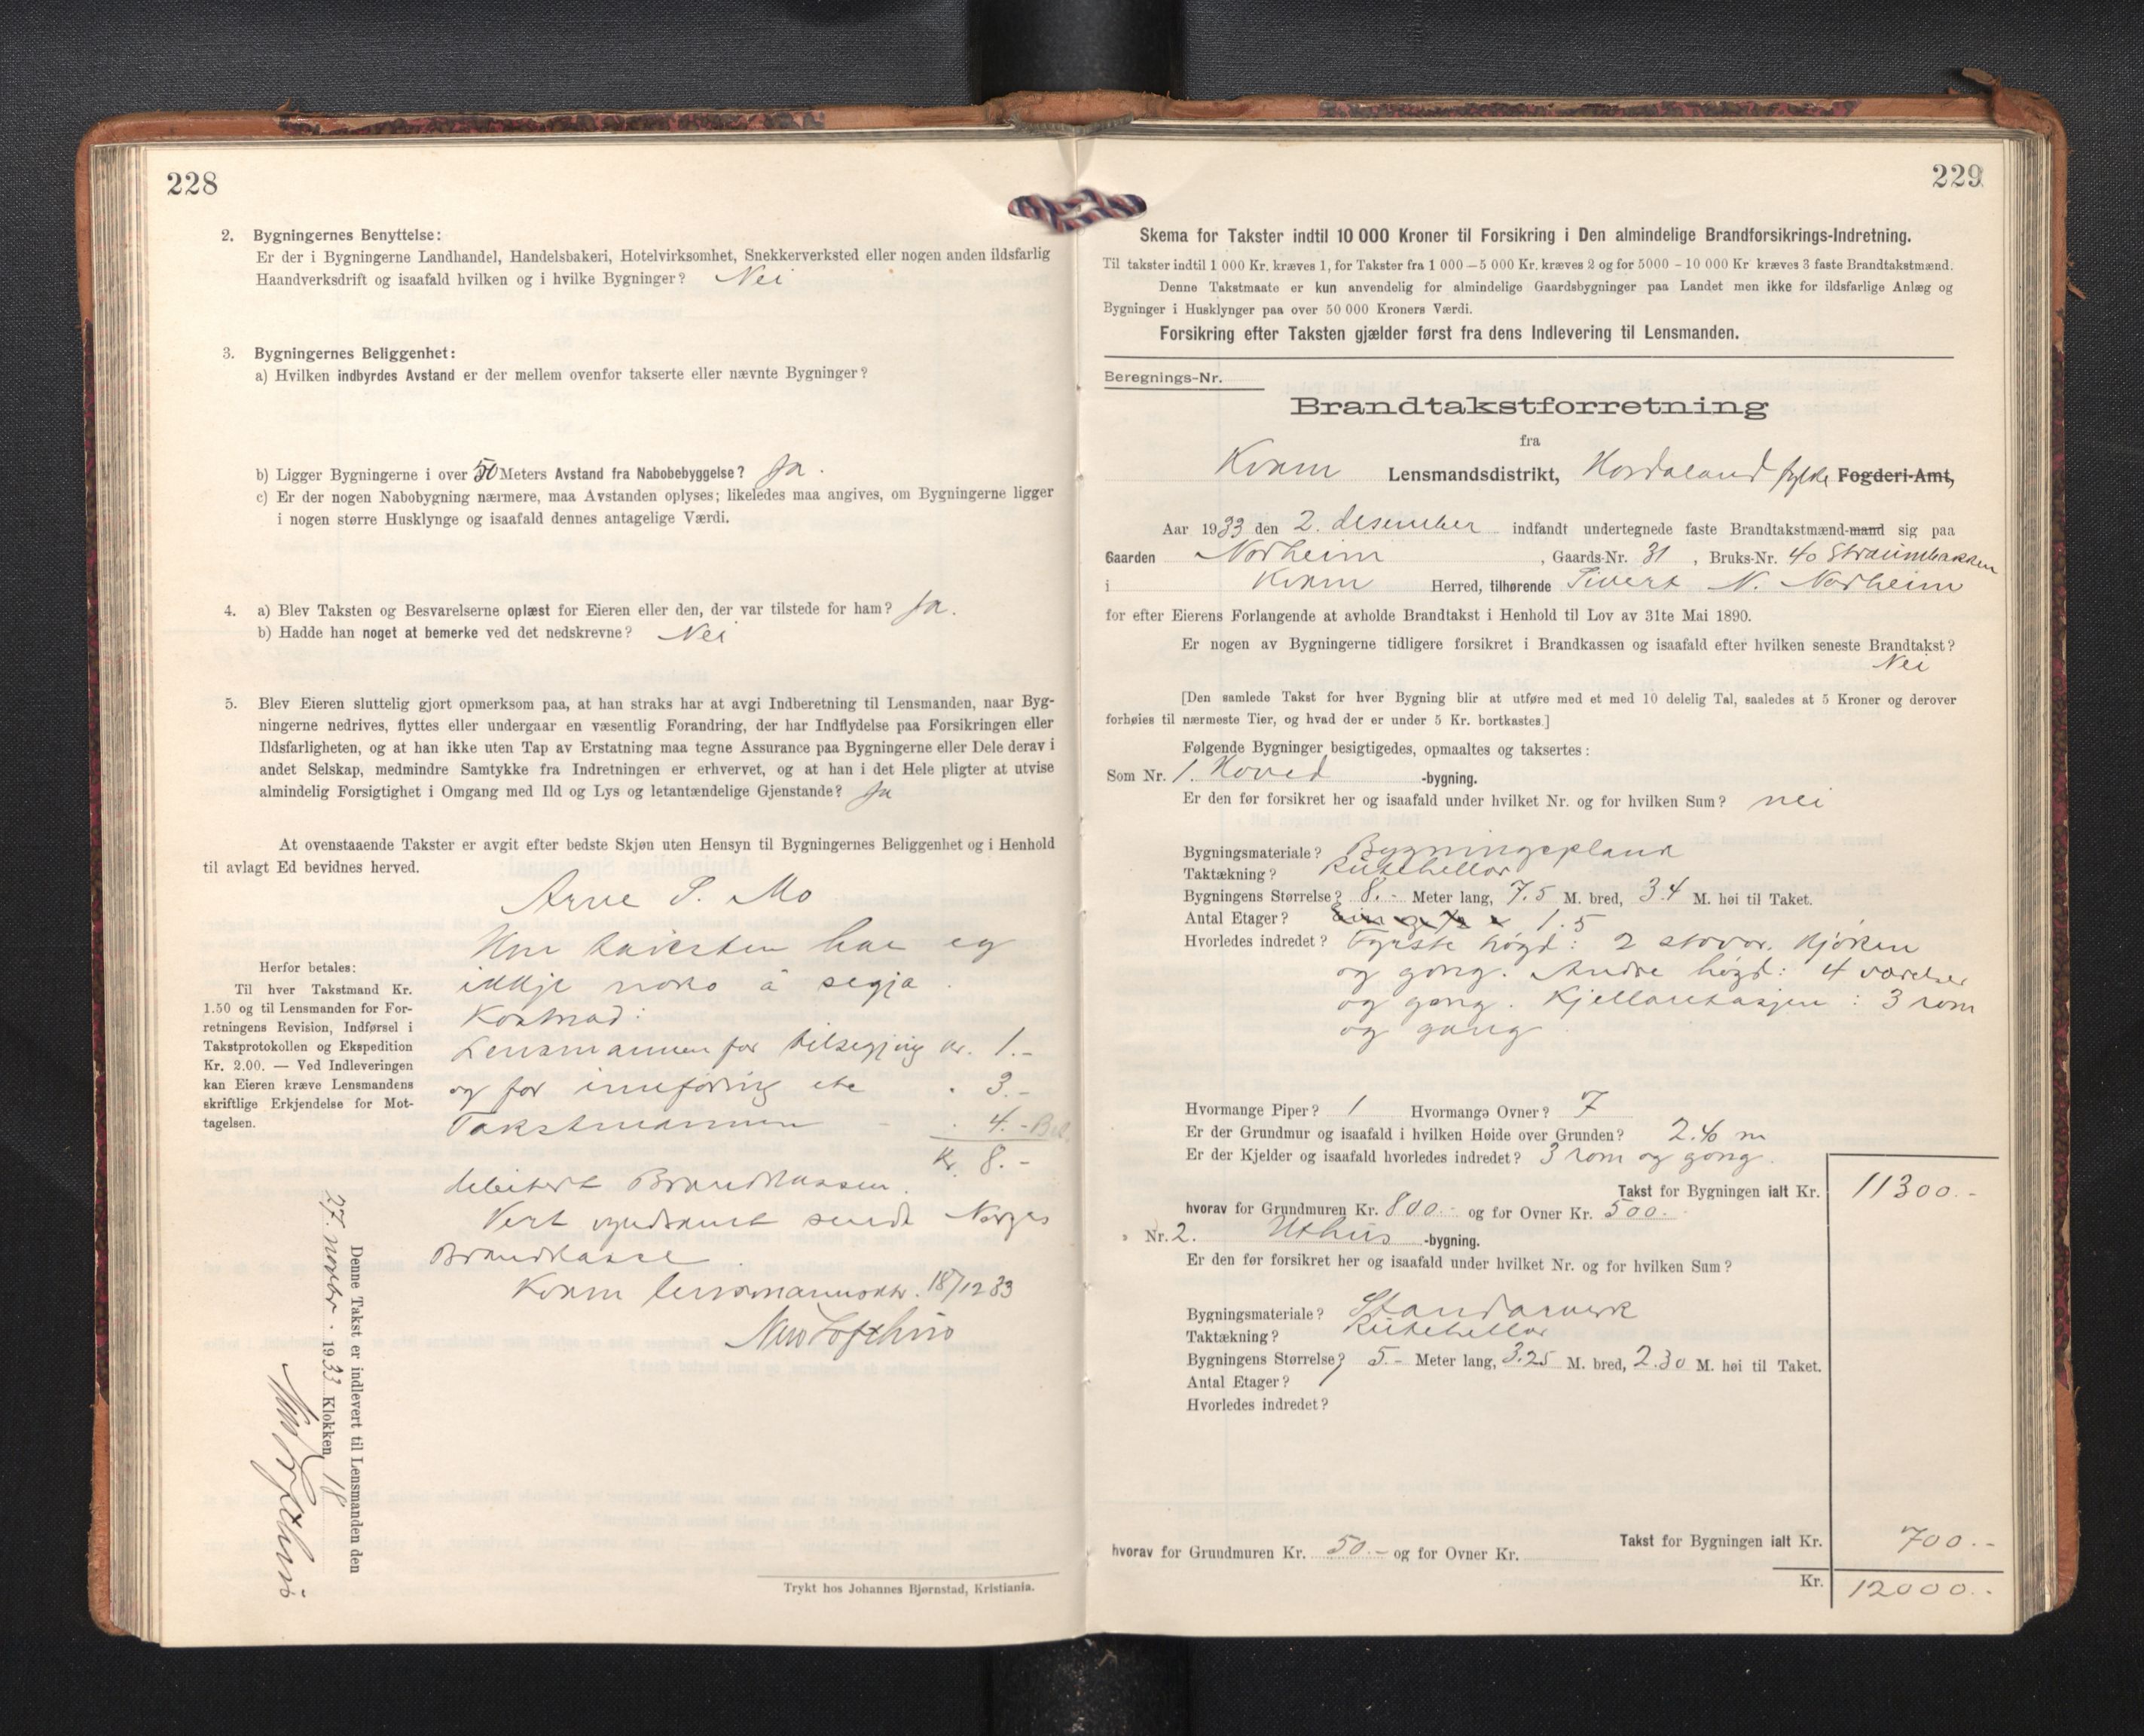 228
2. Bygningernes Benyttelse:
Er der i Bygningerne Landhandel, Handelsbakeri, Hotelvirksomhet, Snekkerverksted eller nogen anden ildsfarlig
Haandverksdrift og isaafald hvilken og i hvilke Bygninger? Nei
3. Bygningernes Beliggenhet:
a) Hvilken indbyrdes Avstand er der mellem ovenfor takserte eller nævnte Bygninger?
b) Ligger Bygningerne i over 50 Meters Avstand fra Nabobebyggelse? Ja.
c) Er der nogen Nabobygning nærmere, maa Avstanden oplyses; likeledes maa angives, om Bygningerne ligger
i nogen større Husklynge og isaafald dennes antagelige Værdi.
4. a) Blev Taksten og Besvarelserne oplæst for Eieren eller den, der var tilstede for ham? Ja.
b) Hadde han noget at bemerke ved det nedskrevne? Nei
5. Blev Eieren sluttelig gjort opmerksom paa, at han straks har at avgi Indberetning til Lensmanden, naar Byg-
ningerne nedrives, flyttes eller undergaar en væsentlig Forandring, der har Indflydelse paa Forsikringen eller
Ildsfarligheten, og at han ikke uten Tap av Erstatning maa tegne Assurance paa Bygningerne eller Dele derav i
andet Selskap, medmindre Samtykke fra Indretningen er erhvervet, og at han i det Hele pligter at utvise
almindelig Forsigtighet i Omgang med Ild og Lys og letantændelige Gjenstande? Ja
At ovenstaaende Takster er avgit efter bedste Skjøn uten Hensyn til Bygningernes Beliggenhet og i Henhold
til avlagt Ed bevidnes herved.
Arne S. Mo
Um taksten har eg
ikkje noko å segja.
Kostnad:
Lensmannen for tilsegjing kr. 1.-
og for innføring etc " 3.-
Takstmannen " 4.-
Kr. 8.-
debitert Brandkassen.
Vert sende Norges
Brandkasse
Kvam lensmannsktr. 18/12 33
Herfor betales:
Til hver Takstmand Kr.
1.50 og til Lensmanden for For-
retningens Revision, Indførsel i
Takstprotokollen og Ekspedition
Kr. 2.00. — Ved Indleveringen
kan Eieren kræve Lensmandens
skriftlige Erkjendelse for Mot-
tagelsen.
Denne Takst er indlevert til Lensmanden den
27. novbr. 1933 Klokken 18
Trykt hos Johannes Bjørnstad, Kristiania.
229
Skema for Takster indtil 10 000 Kroner til Forsikring i Den almindelige Brandforsikrings-Indretning.
Til takster indtil 1 000 Kr. kræves 1, for Takster fra 1 000 — 5 000 Kr. kræves 2 og for 5000 - 10 000 Kr kræves 3 faste Brandtakstmænd.
Denne Takstmaate er kun anvendelig for almindelige Gaardsbygninger paa Landet men ikke for ildsfarlige Anlæg og
Bygninger i Husklynger paa over 50 000 Kroners Værdi.
Forsikring efter Taksten gjælder først fra dens Indlevering til Lensmanden.
Beregnings-Nr.
Brandtakstforretning
fra
Kvam Lensmandsdistrikt, Hordaland fylke Fogderi-Amt,
Aar 1933 den 2. desember indfandt undertegnede faste Brandtakstmænd-mand sig paa
Gaarden Norheim, Gaards-Nr. 31, Bruks-Nr. 40 Straumbakken
i Kvam Herred, tilhørende Sivert N. Norheim
for efter Eierens Forlangende at avholde Brandtakst i Henhold til Lov av 31te Mai 1890.
Er nogen av Bygningerne tidligere forsikret i Brandkassen og isaafald efter hvilken seneste Brandtakst?
Nei
[Den samlede Takst for hver Bygning blir at utføre med et med 10 delelig Tal, saaledes at 5 Kroner og derover
forhøies til nærmeste Tier, og hvad der er under 5 Kr. bortkastes.]
Følgende Bygninger besigtigedes, opmaaltes og taksertes:
Som Nr. 1. Hoved -bygning.
Er den før forsikret her og isaafald under hvilket Nr. og for hvilken Sum? nei
Bygningsmateriale? Bygningsplank
Taktækning? Rutehellor
Bygningens Størrelse? 8.- Meter lang, 7.5 M. bred, 3.4 M. høi til Taket.
Antal Etager? 1.5
Hvorledes indredet? Fyrste høgd: 2 stovor, kjøken
og gong. Andre høgd: 4 værelser
og gong. Kjellaretasjen: 3 rom
og gang
Hvormange Piper? 1 Hvormange Ovner? 7
Er der Grundmur og isaafald i hvilken Høide over Grunden? 2.40 m
Er der Kjelder og isaafald hvorledes indredet? 3 rom og gong.
Takst for Bygningen ialt Kr. 11300.-
hvorav for Grundmuren Kr. 800.- og for Ovner Kr. 500.-
» Nr. 2. Uthus -bygning.
Er den før forsikret her og isaafald under hvilket Nr. og for hvilken Sum?
Bygningsmateriale? Standarverk
Taktækning? Rutehellor
Bygningens Størrelse? 5.- Meter lang, 3.25 M. bred, 2.30 M. høi til Taket.
Antal Etager? 1
Hvorledes indredet?
Takst for Bygningen ialt Kr. 700.-
hvorav for Grundmuren Kr. 50.- og for Ovner Kr.
Kr. 12000.-